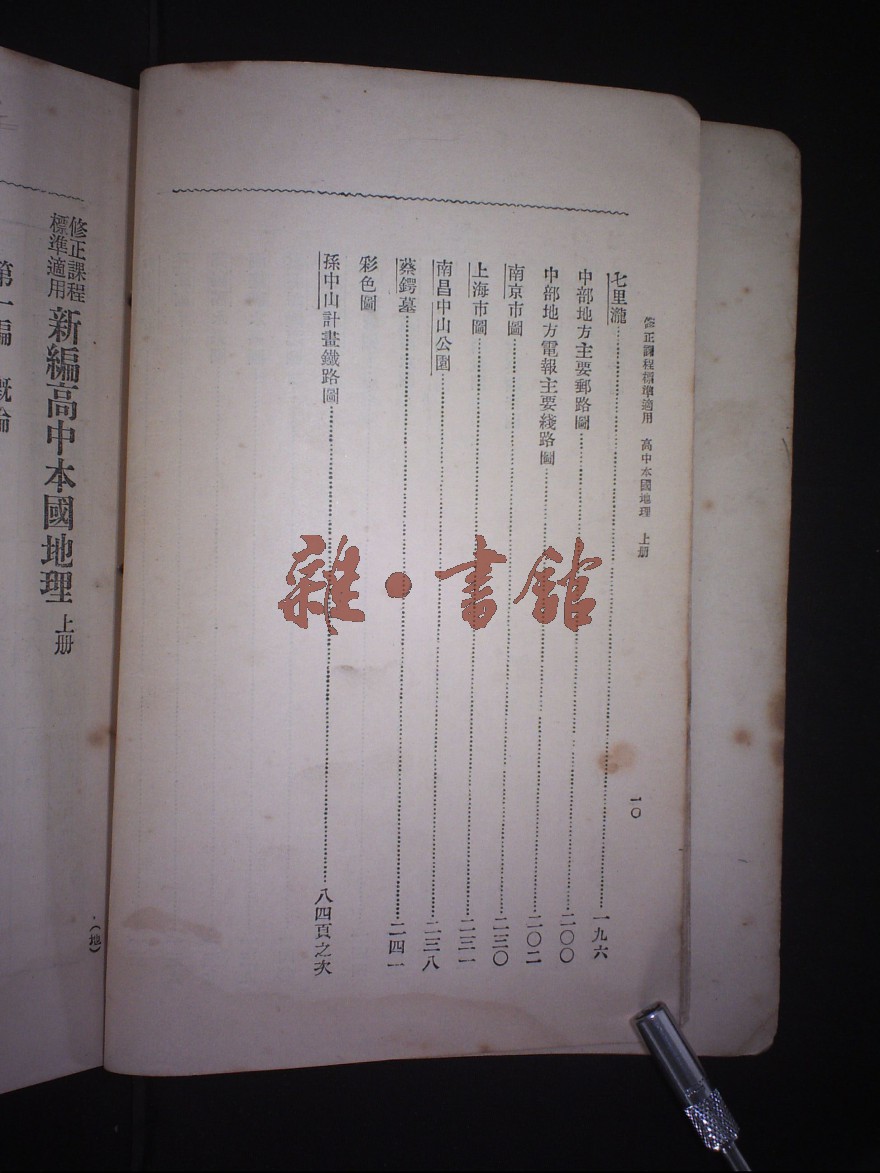 修正課程標準適用 高中本國地理 上册
一〇
七里瀧……一九六
中部地方主要郵路圖……二〇〇
中部地方電報主要綫路圖……二〇二
南京市圖……二三〇
上海市圖……二三一
南昌中山公園……二三八
蔡鍔墓……二四一
彩色圖
孫中山計畫鐵路圖……八四頁之次
修正課程標準適用 新編高中本國地理 上册
(地)
第一編 概論
雜·書館